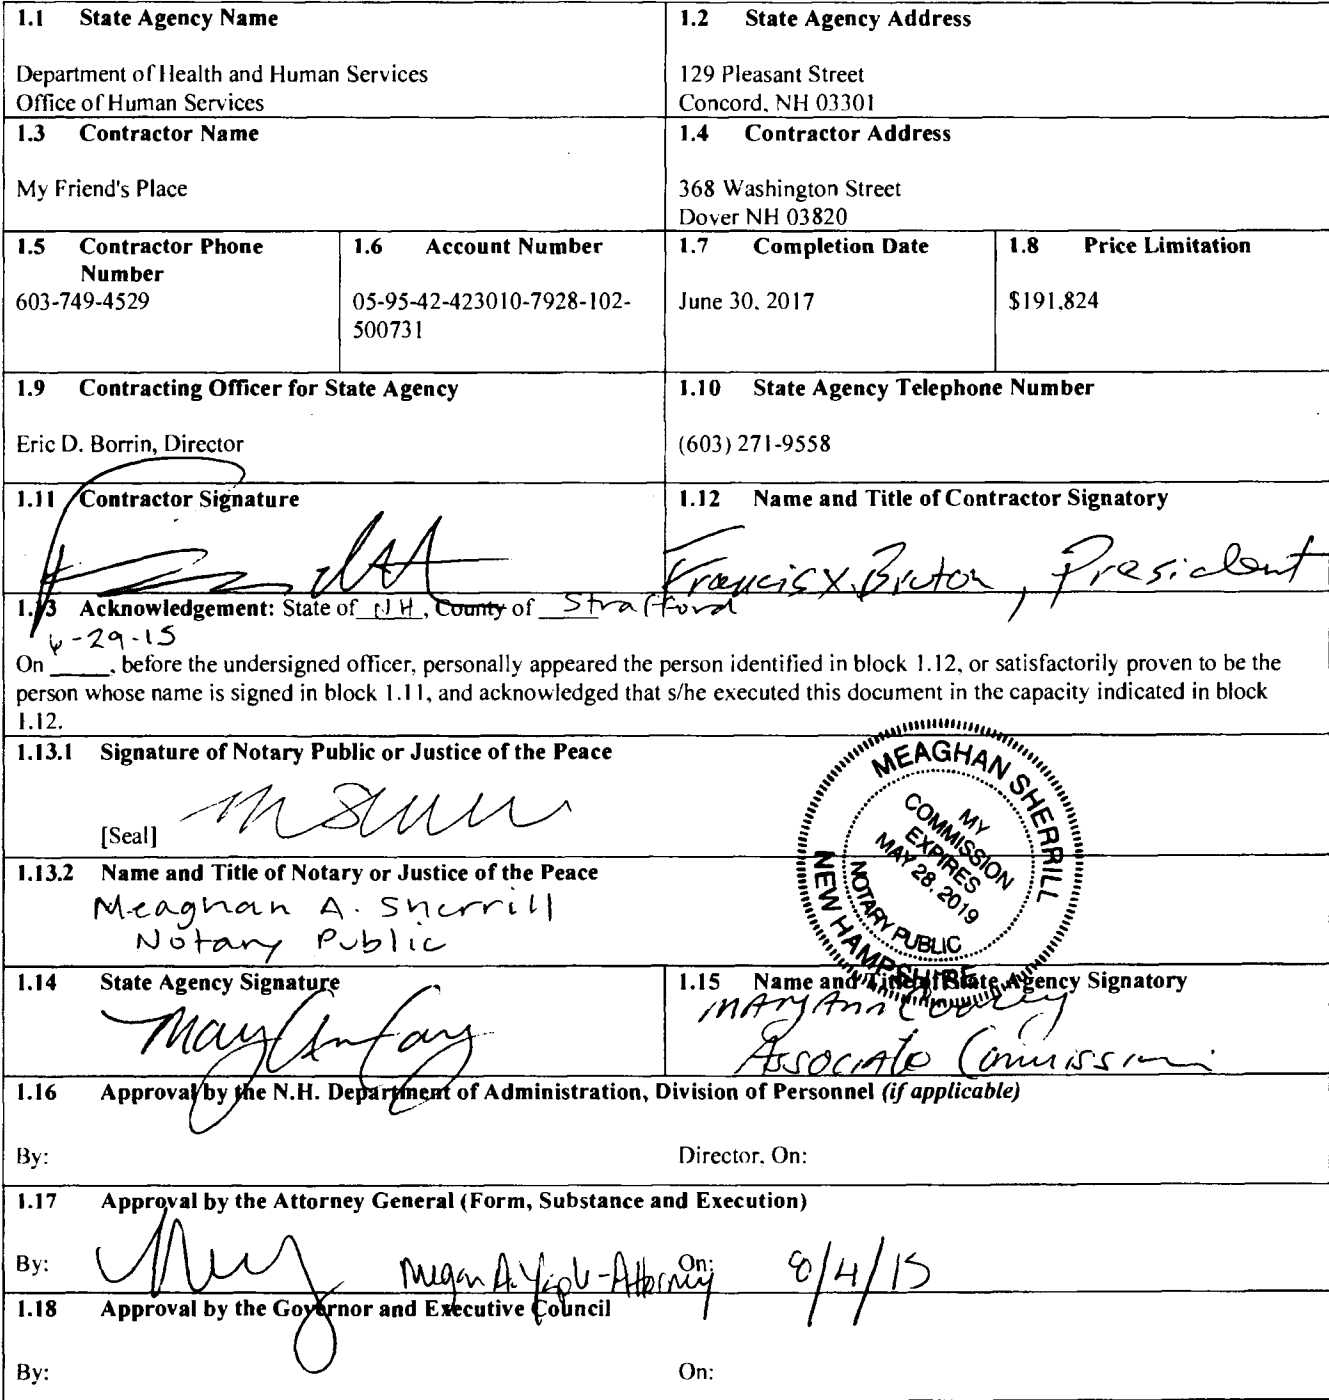 1.1 State Agency Name
Department of Health and Human Services
Office of Human Services
1.2 State Agency Address
129 Pleasant Street
Concord, NH 03301
1.3 Contractor Name
My Friend's Place
1.4 Contractor Address
368 Washington Street
Dover NH 03820
1.5 Contractor Phone
Number
603-749-4529
1.6 Account Number
05-95-42-423010-7928-102-
500731
1.7 Completion Date
June 30, 2017
1.8 Price Limitation
$191,824
1.9 Contracting Officer for State Agency
Eric D. Borrin, Director
1.10 State Agency Telephone Number
(603) 271-9558
1.11 Contractor Signature
1.12 Name and Title of Contractor Signatory
Francis X. Bruton, President
1.13 Acknowledgement: State of NH, County of Strafford
6-29-15
On ____, before the undersigned officer, personally appeared the person identified in block 1.12, or satisfactorily proven to be the
person whose name is signed in block 1.11, and acknowledged that s/he executed this document in the capacity indicated in block
1.12.
1.13.1 Signature of Notary Public or Justice of the Peace
[Seal]
MEAGHAN SHERRILL
MY
COMMISSION
EXPIRES
MAY 28, 2019
NOTARY PUBLIC
NEW HAMPSHIRE
1.13.2 Name and Title of Notary or Justice of the Peace
Meaghan A. Sherrill
Notary Public
1.14 State Agency Signature
1.15 Name and Title of State Agency Signatory
Mary Ann Cooney
Associate Commissioner
1.16 Approval by the N.H. Department of Administration, Division of Personnel (if applicable)
By:
Director, On:
1.17 Approval by the Attorney General (Form, Substance and Execution)
By:
Megan A. - Attorney
On: 8/4/15
1.18 Approval by the Governor and Executive Council
By:
On: